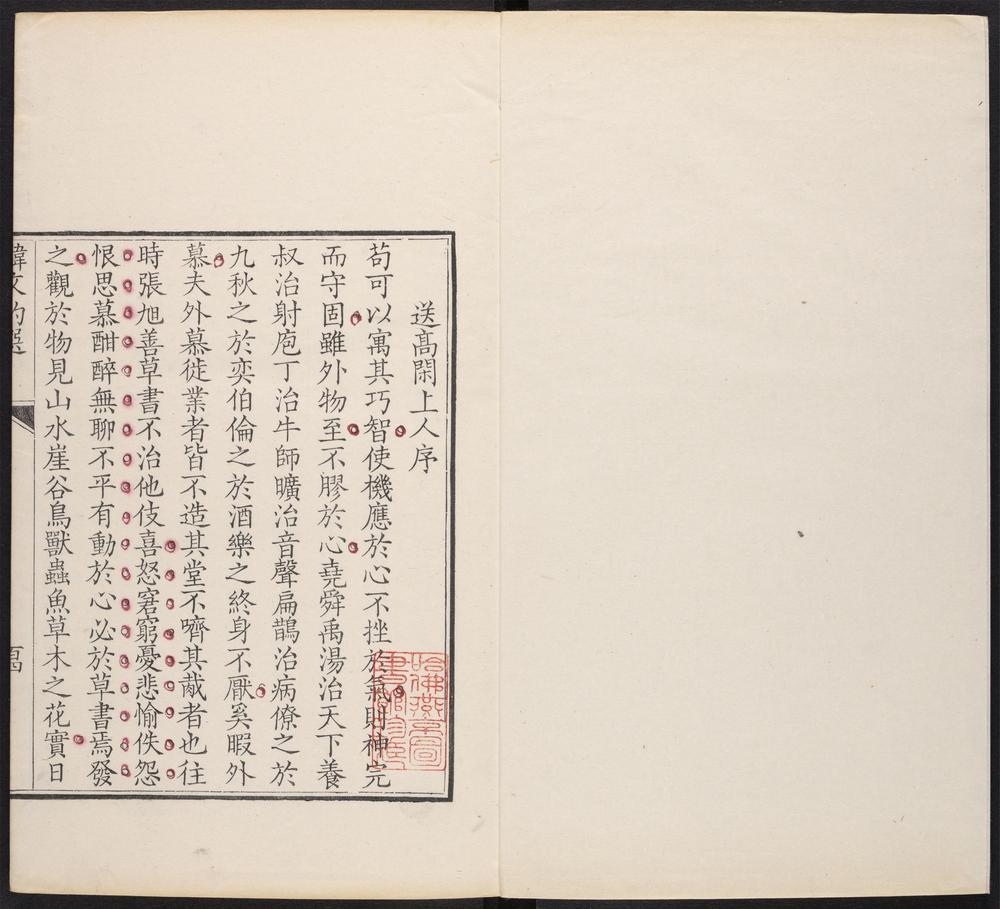 送高閑上人序
苟可以寓其巧智使機應於心不挫於氣則神完
而守固雖外物至不膠於心堯舜禹湯治天下養
叔治射庖丁治牛師曠治音聲扁鵲治病僚之於
丸秋之於奕伯倫之於酒樂之終身不厭奚暇外
慕夫外慕徙業者皆不造其堂不嚌其胾者也往
時張旭善草書不治他伎喜怒窘窮憂悲愉佚怨
恨思慕酣醉無聊不平有動於心必於草書焉發
之觀於物見山水崖谷鳥獸蟲魚草木之花實日
哈佛燕京圖
書館